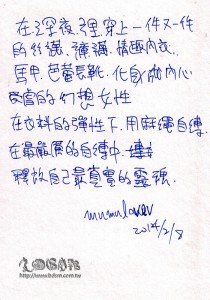 在深夜裡穿上一件又一件
的絲襪、褲襪、情趣內衣、
馬甲、芭蕾長靴,化身成內心
的幻想女性
在衣料的彈性下、用麻繩自縛
在最嚴厲的自縛中、
釋放自己最真實的靈魂.
mumulover
2014/2/8
http://www.bdsm.com.tw